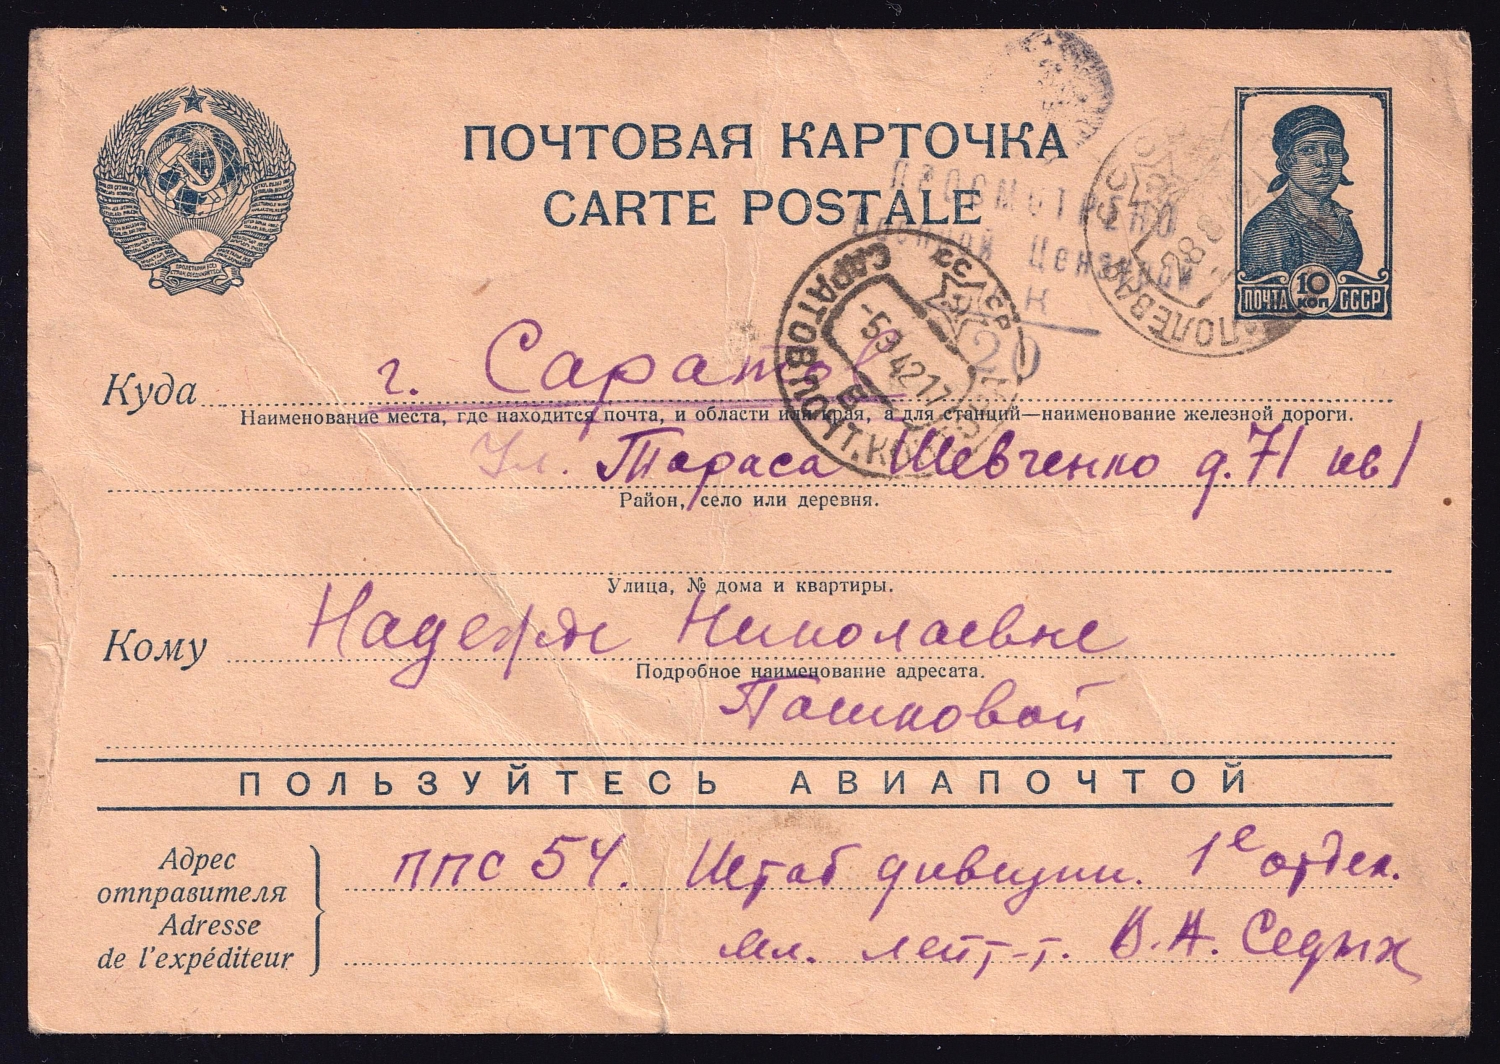 ПОЧТОВАЯ КАРТОЧКА
CARTE POSTALE
Просмотрено
Военной Цензурой
20
ПОЛЕВАЯ
28 8 42
ПОЧТА 10 КОП СССР
САРАТОВ ПОЧТ.
-5 9 42 17
Куда г. Саратов
Наименование места, где находится почта, и области или края, а для станций—наименование железной дороги.
Ул. Тараса Шевченко д. 71 кв 1
Район, село или деревня.
Улица, № дома и квартиры.
Кому Надежде Николаевне
Подробное наименование адресата.
Пашковой
ПОЛЬЗУЙТЕСЬ АВИАПОЧТОЙ
Адрес
отправителя
Adresse
de l'expéditeur
ППС 54. Штаб дивизии. 1е отдел.
мл. лейт-т. В. А. Седых